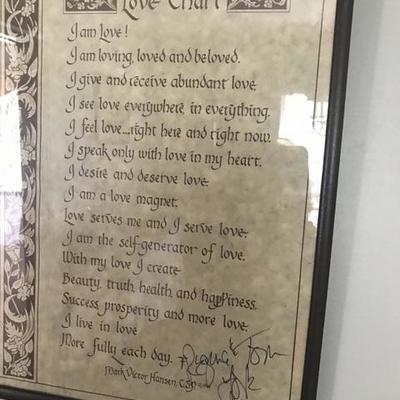 Love Chart
I am Love!
I am loving, loved and beloved.
I give and receive abundant love.
I see love everywhere, in everything.
I feel love...right here and right now.
I speak only with love in my heart.
I desire and deserve love.
I am a love magnet.
Love serves me and I serve love.
I am the self-generator of love.
With my love I create
Beauty, truth, health, and happiness,
Success, prosperity and more love.
I live in love
More fully each day.
Mark Victor Hansen, CSP